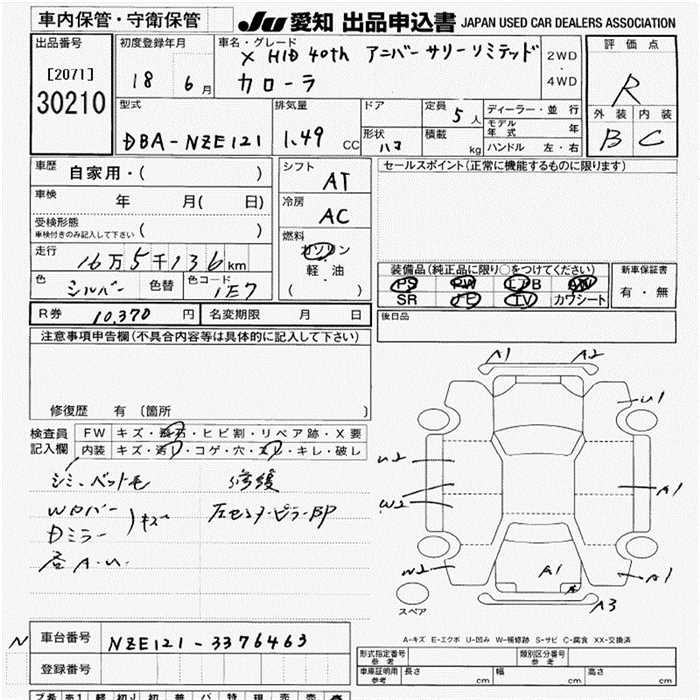 車内保管・守衛保管
JU 愛知 出品申込書 JAPAN USED CAR DEALERS ASSOCIATION
出品番号
[2071]
30210
初度登録年月
18 6月
車名・グレード
X HID 40th アニバーサリーリミテッド
カローラ
2WD
・
4WD
評価点
R
外装 内装
B C
型式
DBA-NZE121
排気量
1.49 CC
ドア
形状 ハコ
定員 5人
積載 kg
ディーラー・並行
モデル年式 年
ハンドル 左・右
車歴 自家用・( )
車検 年 月( 日)
受検形態
車検付きのみ記入して下さい ( )
走行 16万5千136km
色 シルバー 色替 色コード 1E7
R券 10,370円 名変期限 月 日
シフト AT
冷房 AC
燃料
ガソリン
軽・油
( )
セールスポイント(正常に機能するものに限ります)
装備品(純正品に限り○をつけてください)
PS PW エアB AW
SR ナビ TV カワシート
新車保証書
有・無
後日品
注意事項申告欄(不具合内容等は具体的に記入して下さい)
修復歴 有 〔箇所 〕
検査員記入欄
FW キズ・飛石・ヒビ割・リペア跡・X要
内装 キズ・汚レ・コゲ・穴・スレ・キレ・破レ
シミ、ペット毛
Wカバー
Dミラー
キズ
A・U
修復
左センターピラーBP
A1 A2
U1
U2
W2
A1
W2
A1
A
A1
A3
スペア
A-キズ E-エクボ U-凹み W-補修跡 S-サビ C-腐食 XX-交換済
N
車台番号 NZE121-3376463
登録番号
形式指定番号 参考
類別区分番号 参考
車庫証明用 参考 長さ cm 幅 cm 高さ cm